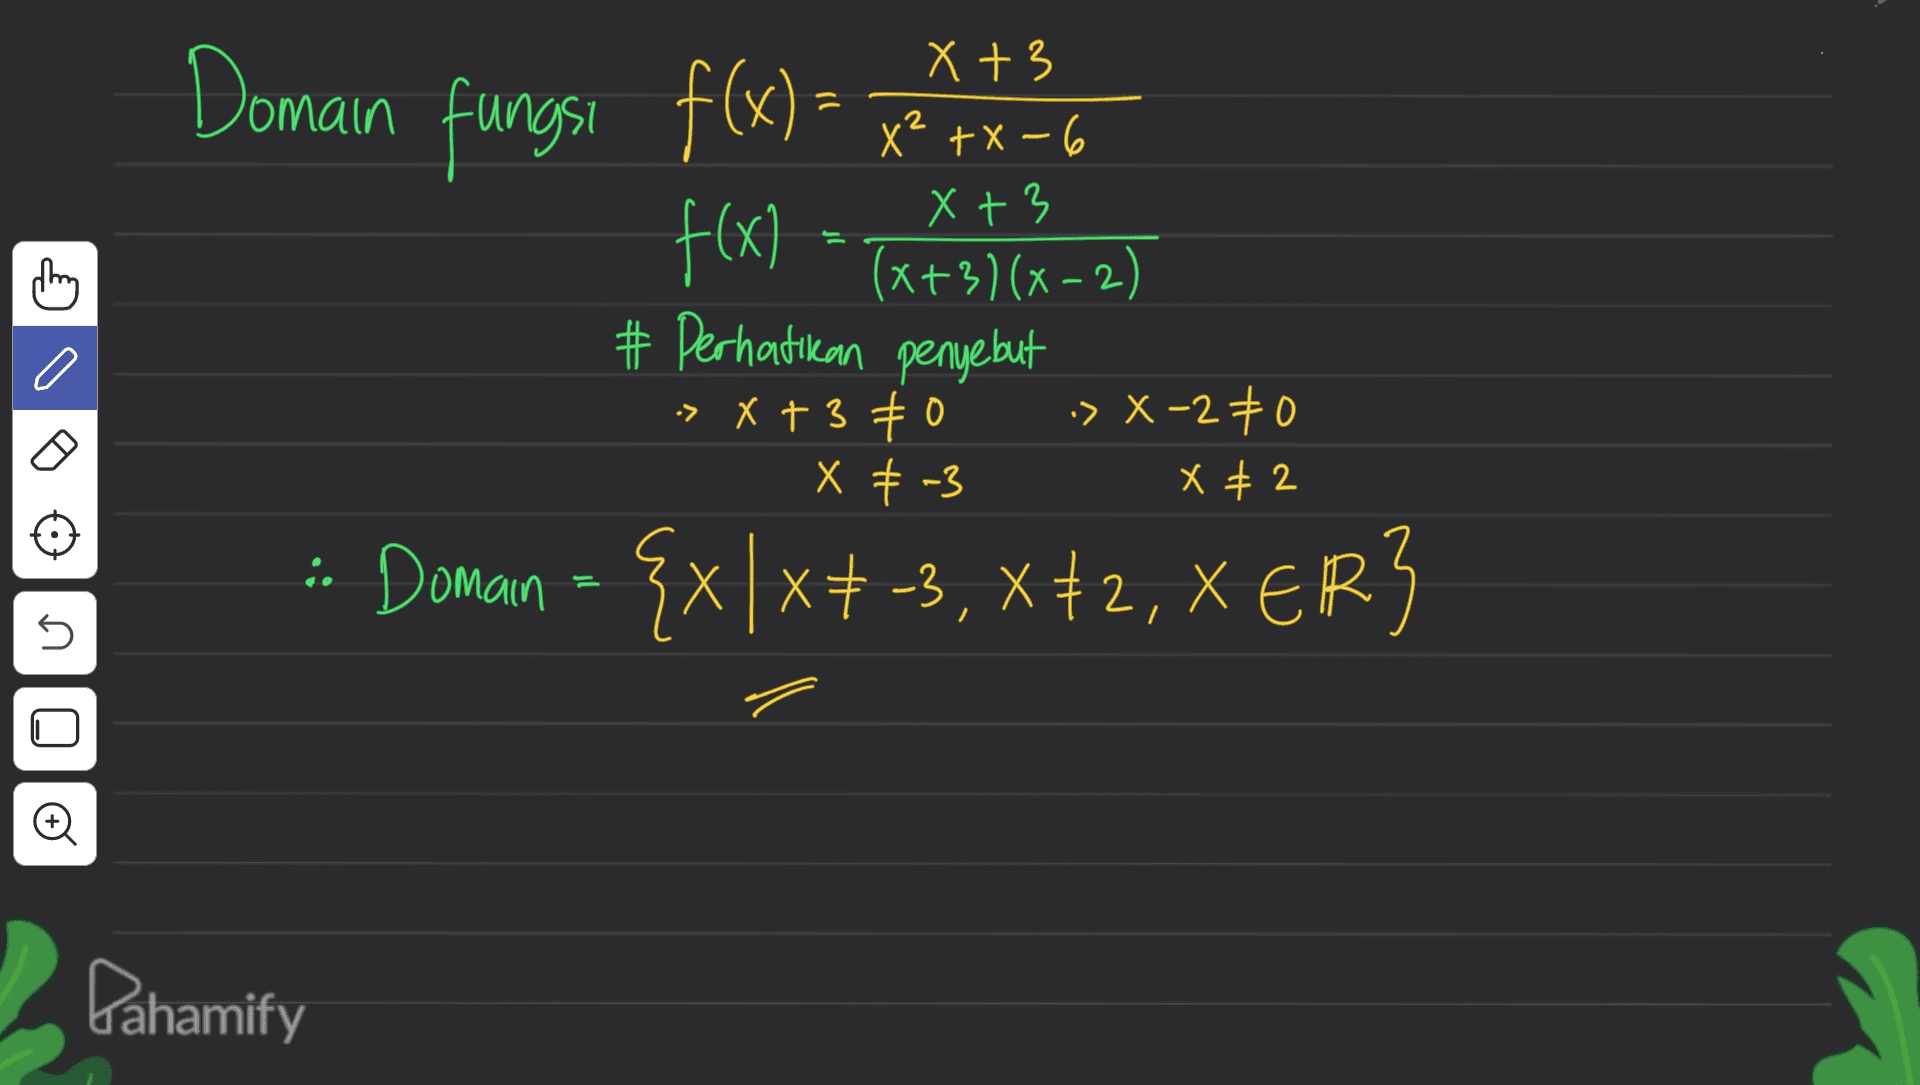 Domain fungsi f(x) = x + 3 / x² + x - 6
f(x) = x + 3 / (x+3)(x-2)
# Perhatikan penyebut
·> x + 3 ≠ 0 ·> x - 2 ≠ 0
x ≠ -3 x ≠ 2
∴ Domain = {x | x ≠ -3, x ≠ 2, x ∈ R}
Pahamify